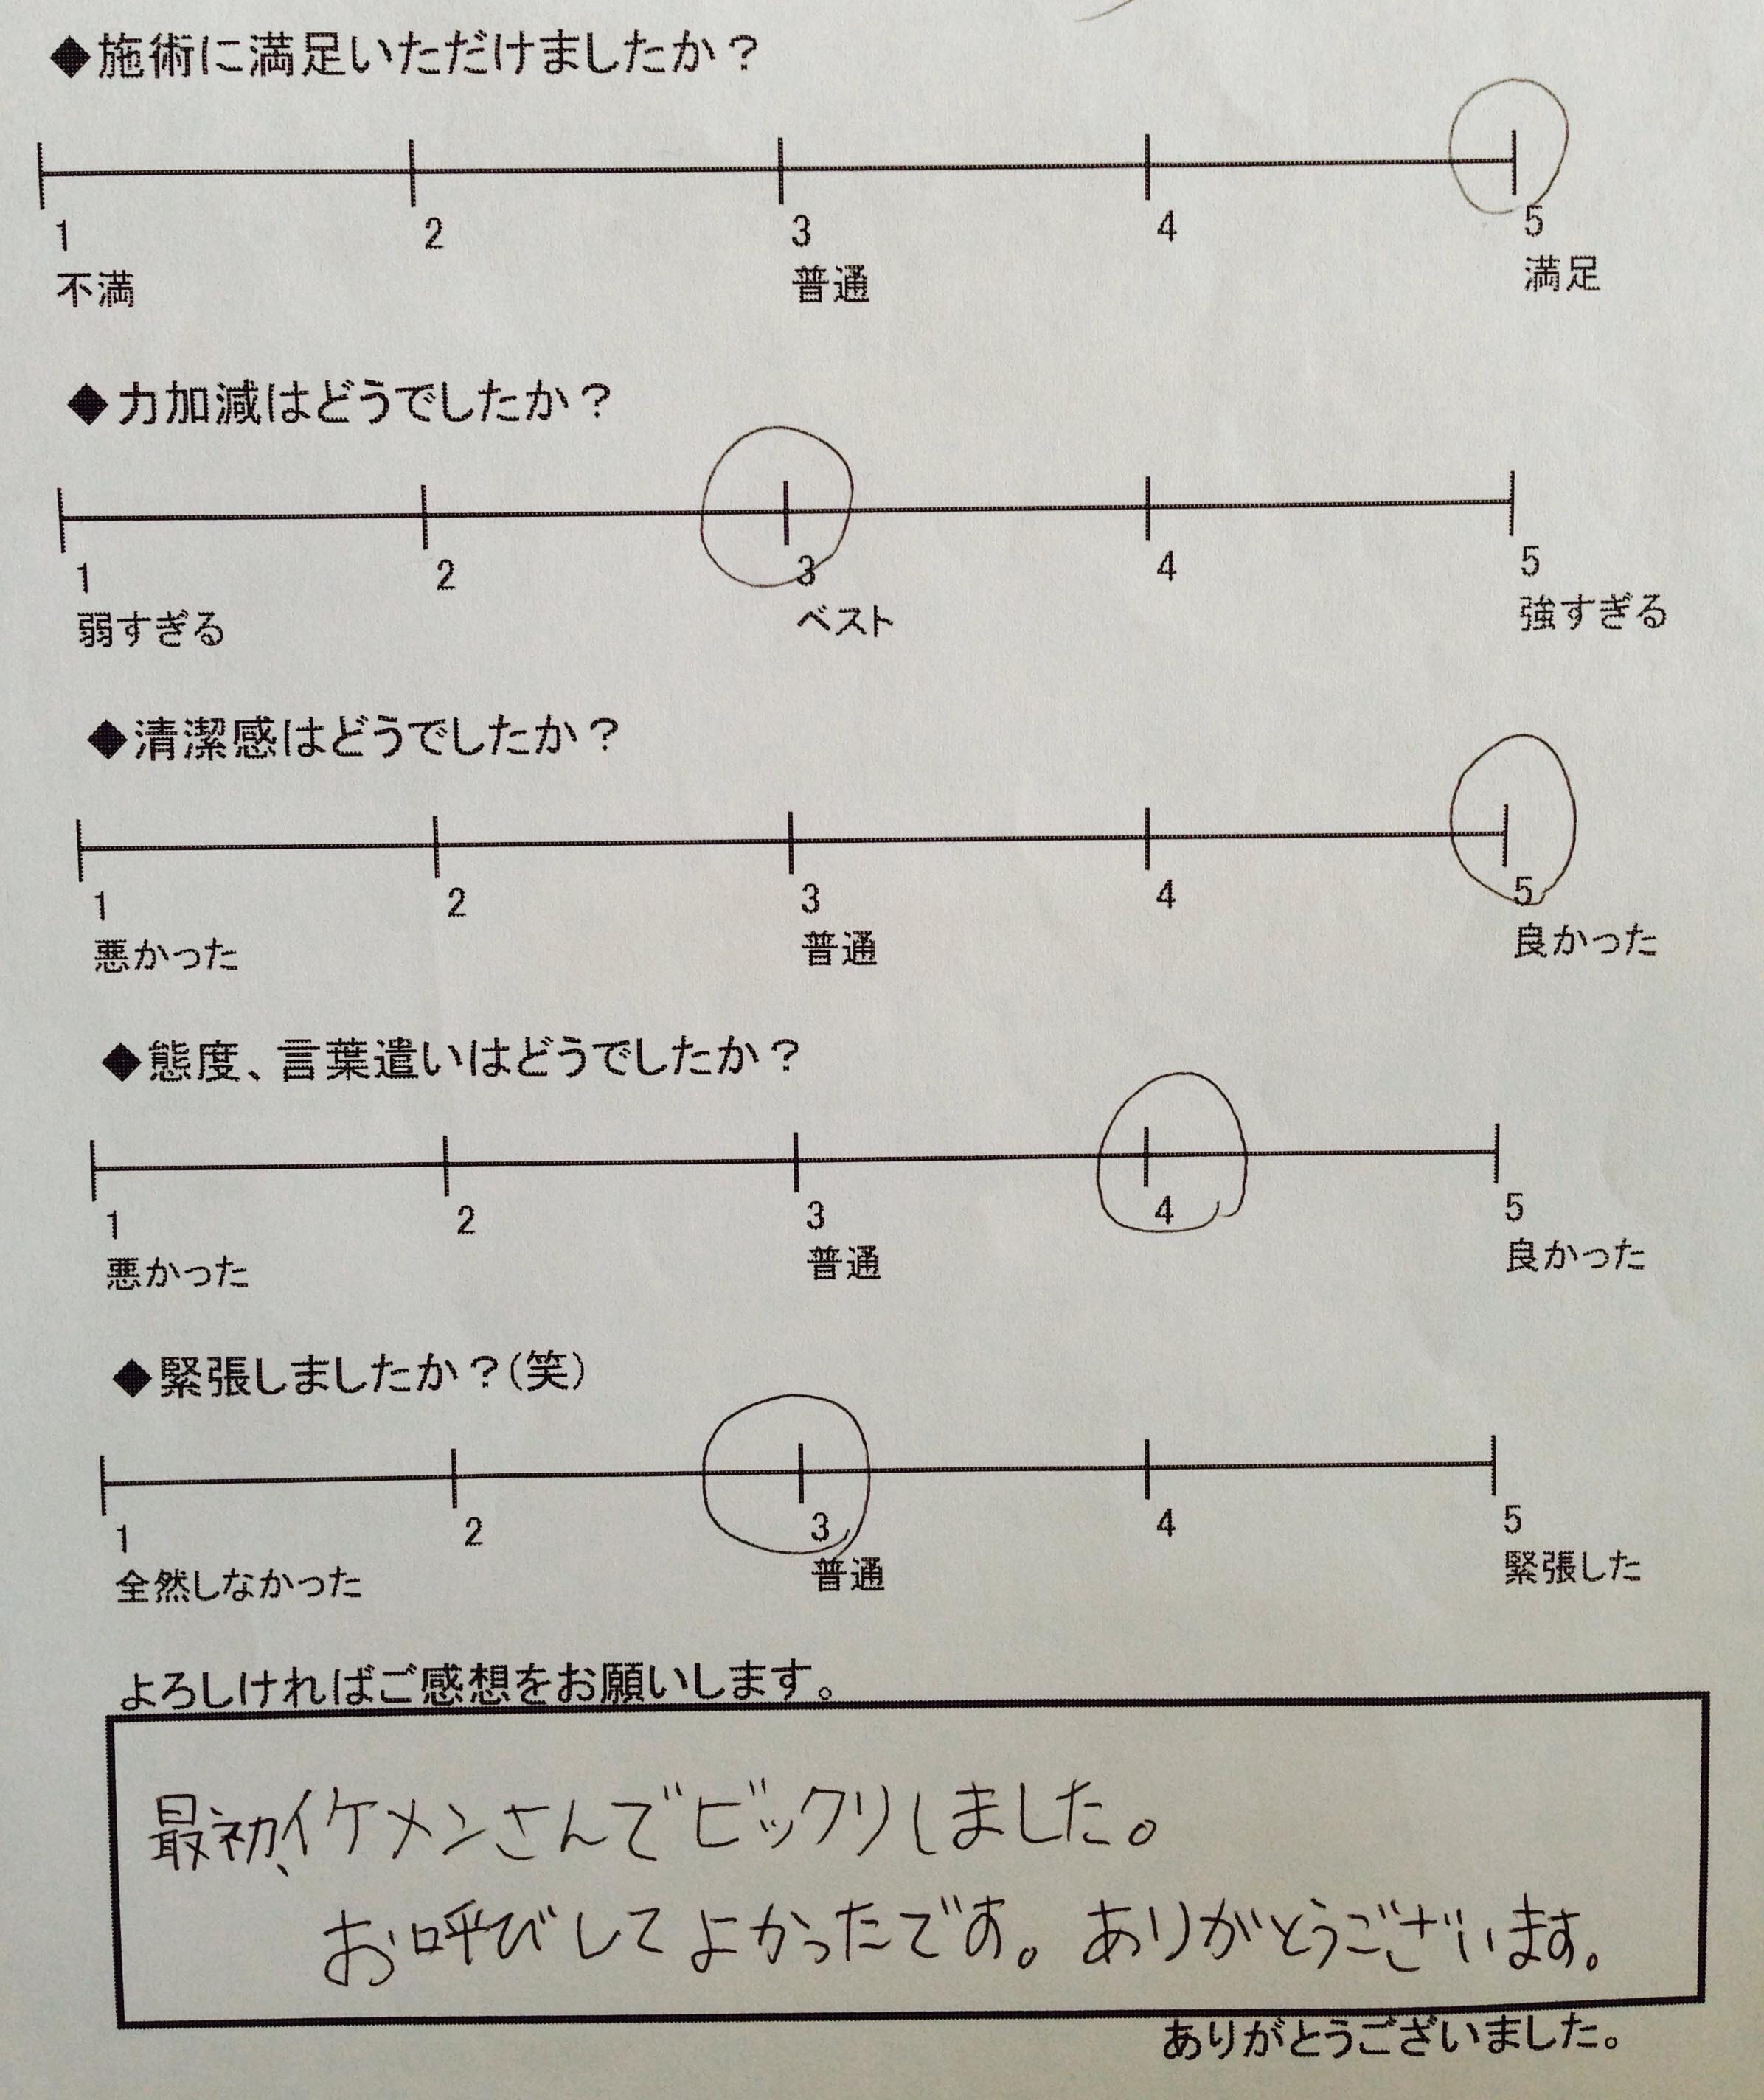 ◆施術に満足いただけましたか？
1 2 3 4 5
不満 普通 満足
◆力加減はどうでしたか？
1 2 3 4 5
弱すぎる ベスト 強すぎる
◆清潔感はどうでしたか？
1 2 3 4 5
悪かった 普通 良かった
◆態度、言葉遣いはどうでしたか？
1 2 3 4 5
悪かった 普通 良かった
◆緊張しましたか？（笑）
1 2 3 4 5
全然しなかった 普通 緊張した
よろしければご感想をお願いします。
最初、イケメンさんでビックリしました。
お呼びしてよかったです。ありがとうございます。
ありがとうございました。